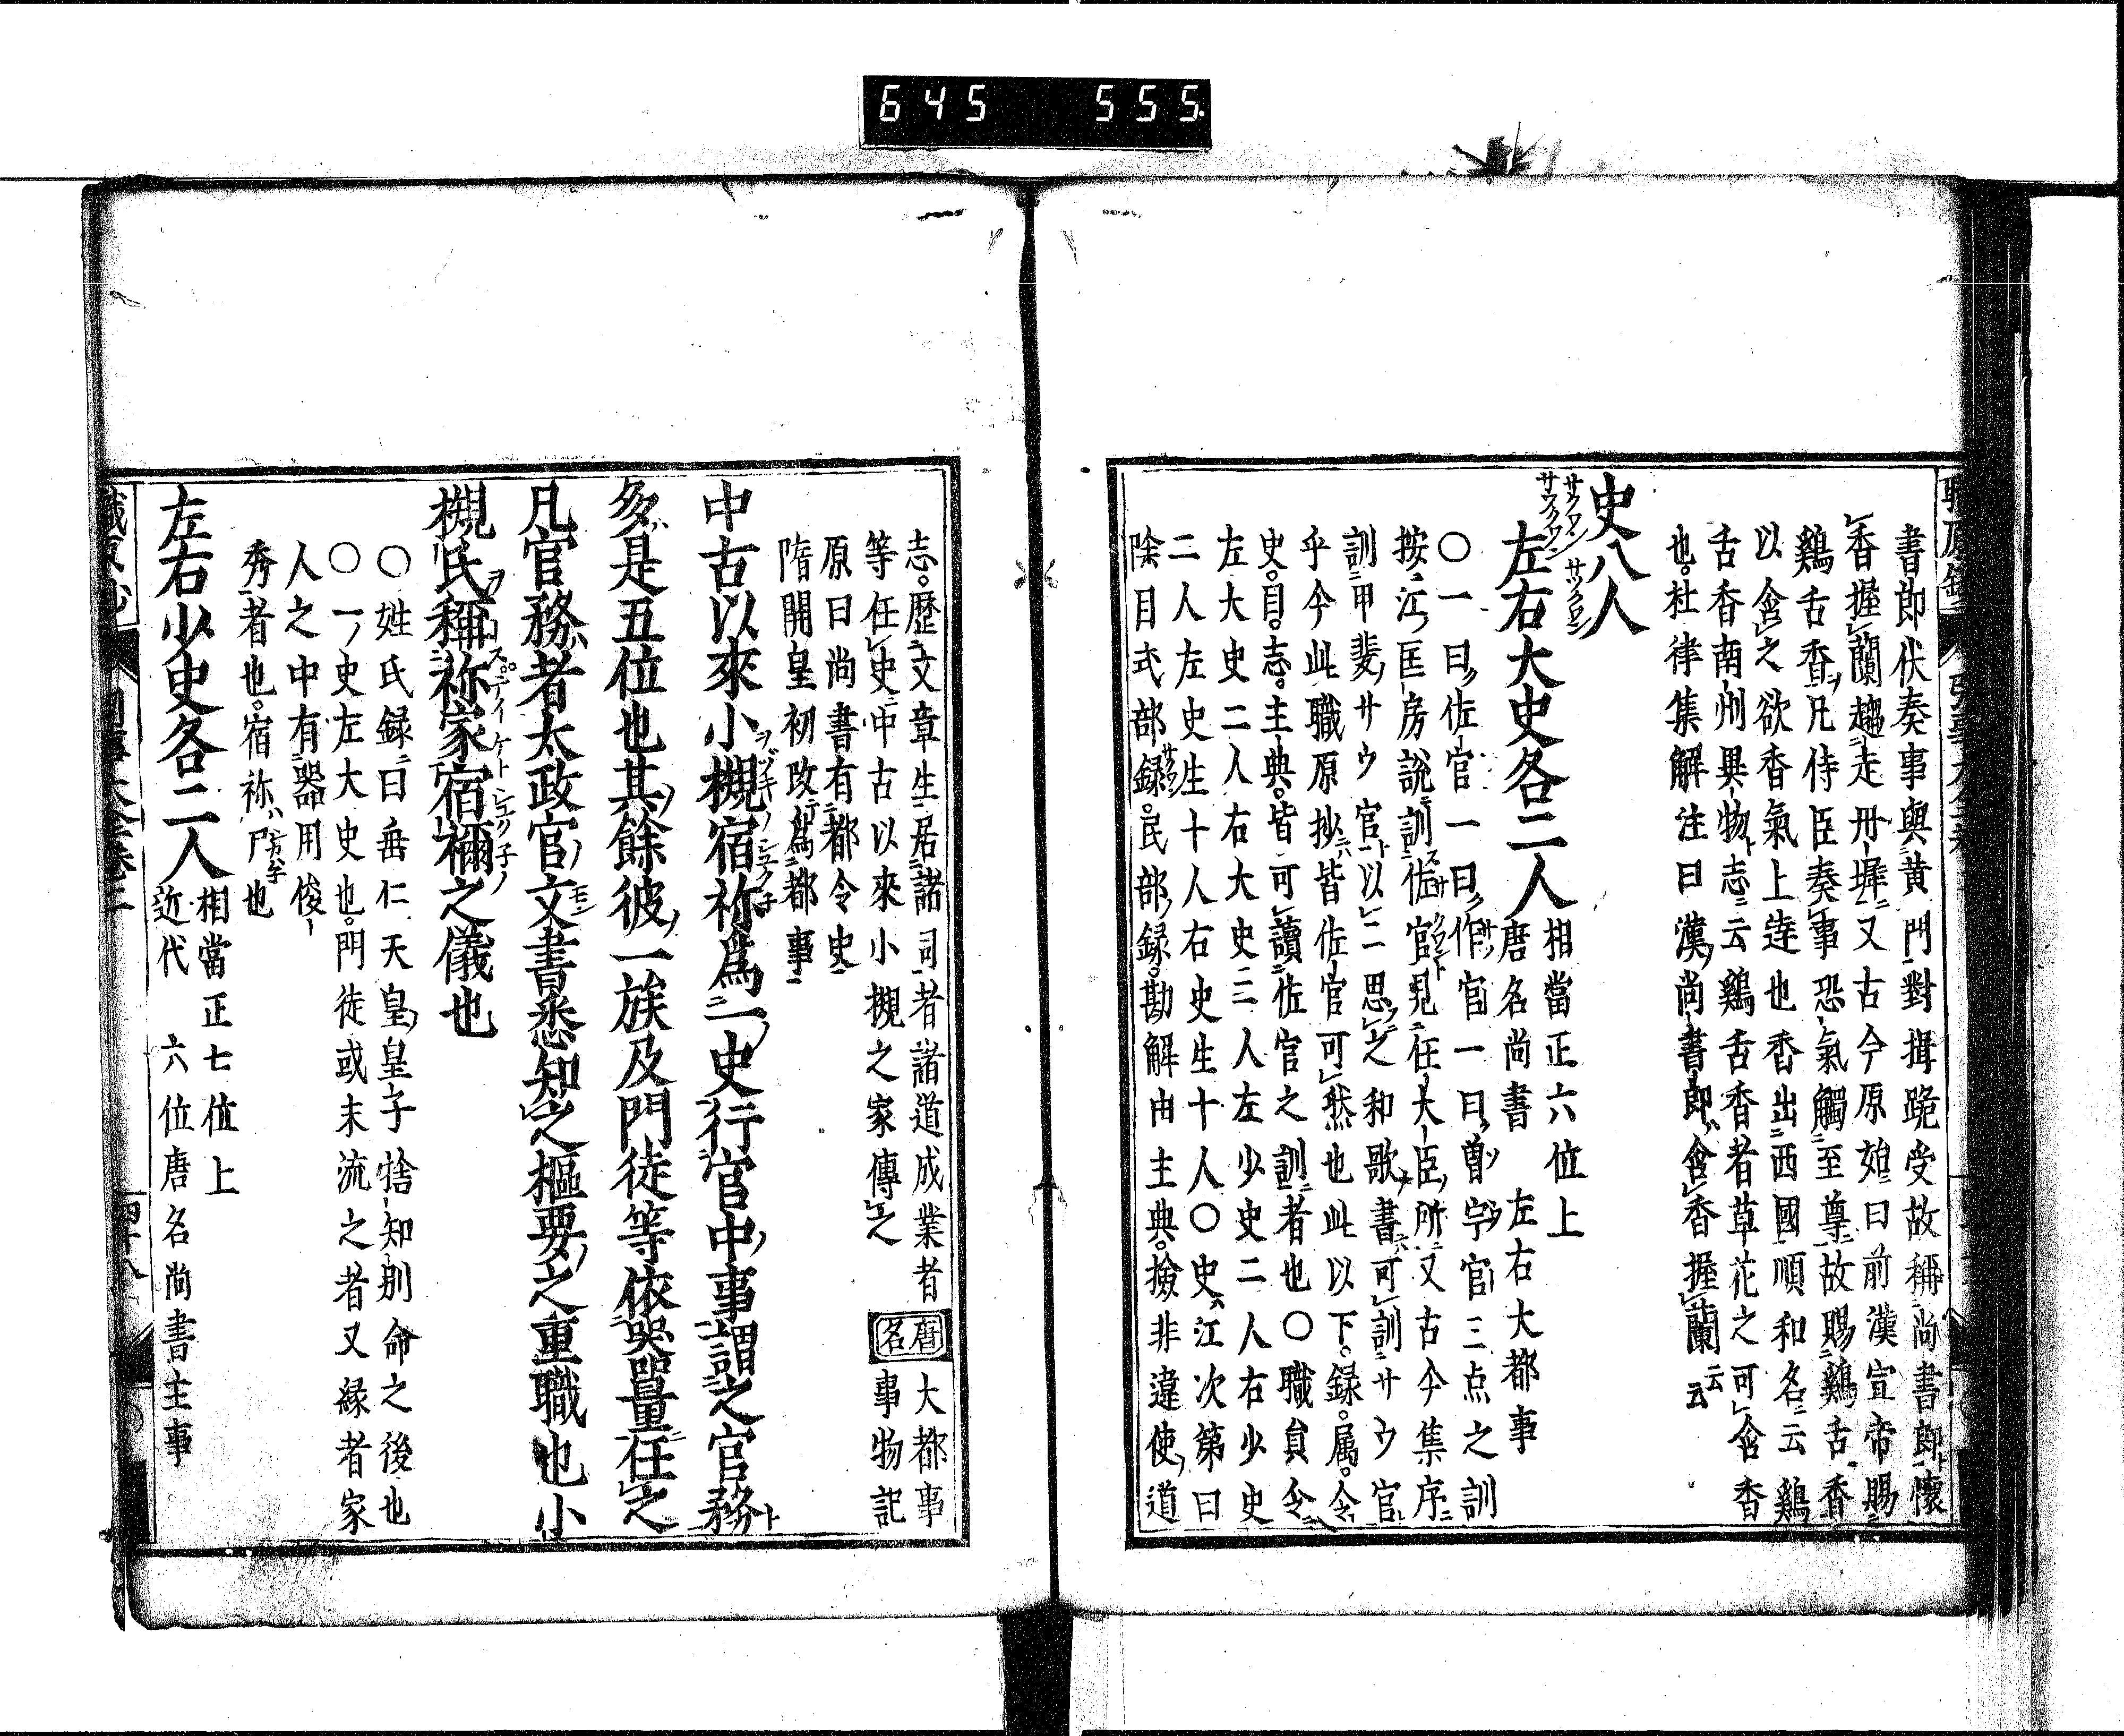 645 555
書郎伏奏事與黄門對揖跪受故稱尚書郎懷
香握蘭趨走丹墀又古今原始曰前漢宣帝賜
鷄舌香凡侍臣奏事恐氣觸至尊故賜鷄舌香
以含之欲香氣上達也香出西國順和名云鷄
舌香南州異物志云鷄舌香香者草花之可含香
也杜律集解注曰漢尚書郎含香握蘭云云
史八人
左右大史各二人
相當正六位上
唐名尚書 左右大都事
〇一曰佐官一曰作官一曰曽宇官三点之訓
按江匡房説訓佐官見任大臣所又古今集序
訓甲斐サウ官以二思之和歌書可訓サウ官
乎今此職原抄皆佐官可然也此以下録属令
史目志主典皆可讀佐官之訓者也〇職員令
左大史二人右大史二人左少史二人右少史
二人左史生十人右史生十人〇史江次第曰
除目式部録民部録勘解由主典撿非違使道
志歴文章生居諸司者諸道成業者
等任史中古以來小槻之家傳之
唐名
大都事
事物記
原曰尚書有都令史
隋開皇初改爲都事
中古以來小槻宿祢爲一史行官中事謂之官務
多是五位也其餘彼一族及門徒等依器量任之
凡官務者太政官文書悉知之樞要之重職也小
槻氏稱祢家宿禰之儀也
〇姓氏録曰垂仁天皇皇子捨知別命之後也
〇一史左大史也門徒或末流之者又縁者家
人之中有器用俊
秀者也宿祢尸也
左右少史各二人
相當正七位上
近代 六位唐名尚書主事